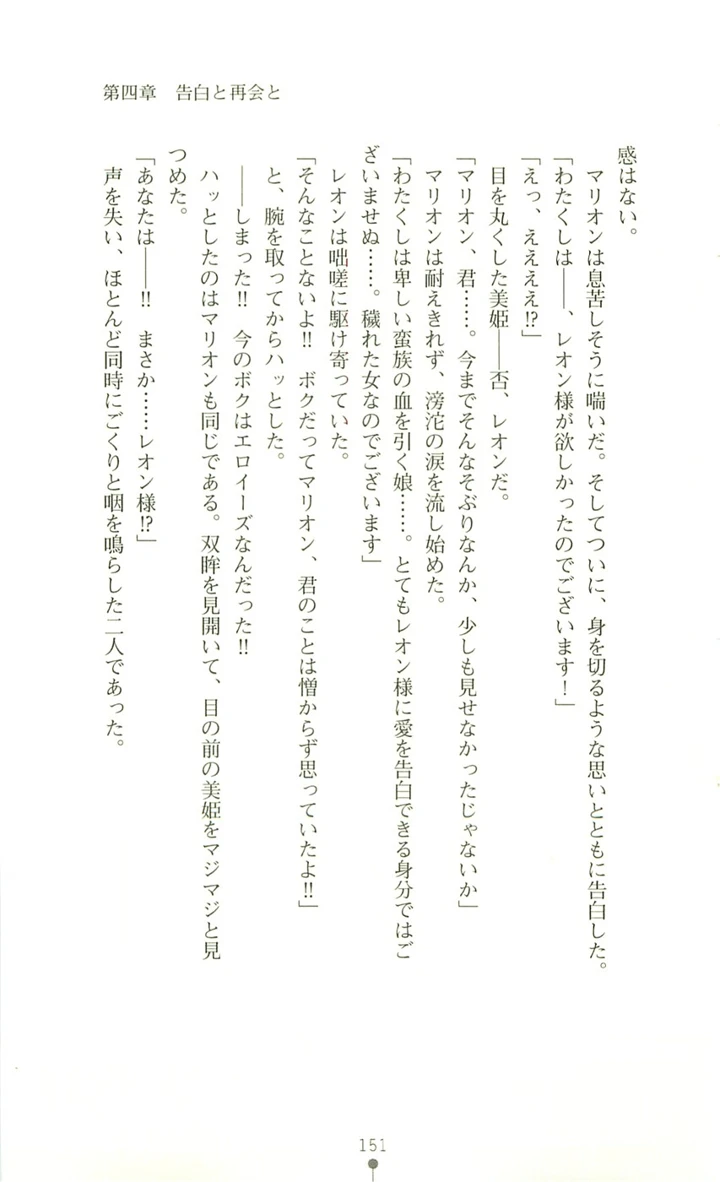 第四章　告白と再会と
感はない。
　マリオンは息苦しそうに喘いだ。そしてついに、身を切るような思いとともに告白した。
「わたくしは――、レオン様が欲しかったのでございます！」
「えっ、ええええ!?」
　目を丸くした美姫――否、レオンだ。
「マリオン、君……。今までそんなそぶりなんか、少しも見せなかったじゃないか」
　マリオンは耐えきれず、滂沱の涙を流し始めた。
「わたくしは卑しい蛮族の血を引く娘……。とてもレオン様に愛を告白できる身分ではご
ざいませぬ……。穢れた女なのでございます」
　レオンは咄嗟に駆け寄っていた。
「そんなことないよ!!　ボクだってマリオン、君のことは憎からず思っていたよ!!」
　と、腕を取ってからハッとした。
　――しまった!!　今のボクはエロイーズなんだった!!
　ハッとしたのはマリオンも同じである。双眸を見開いて、目の前の美姫をマジマジと見
つめた。
「あなたは――!!　まさか……レオン様!?」
　声を失い、ほとんど同時にごくりと咽を鳴らした二人であった。
151